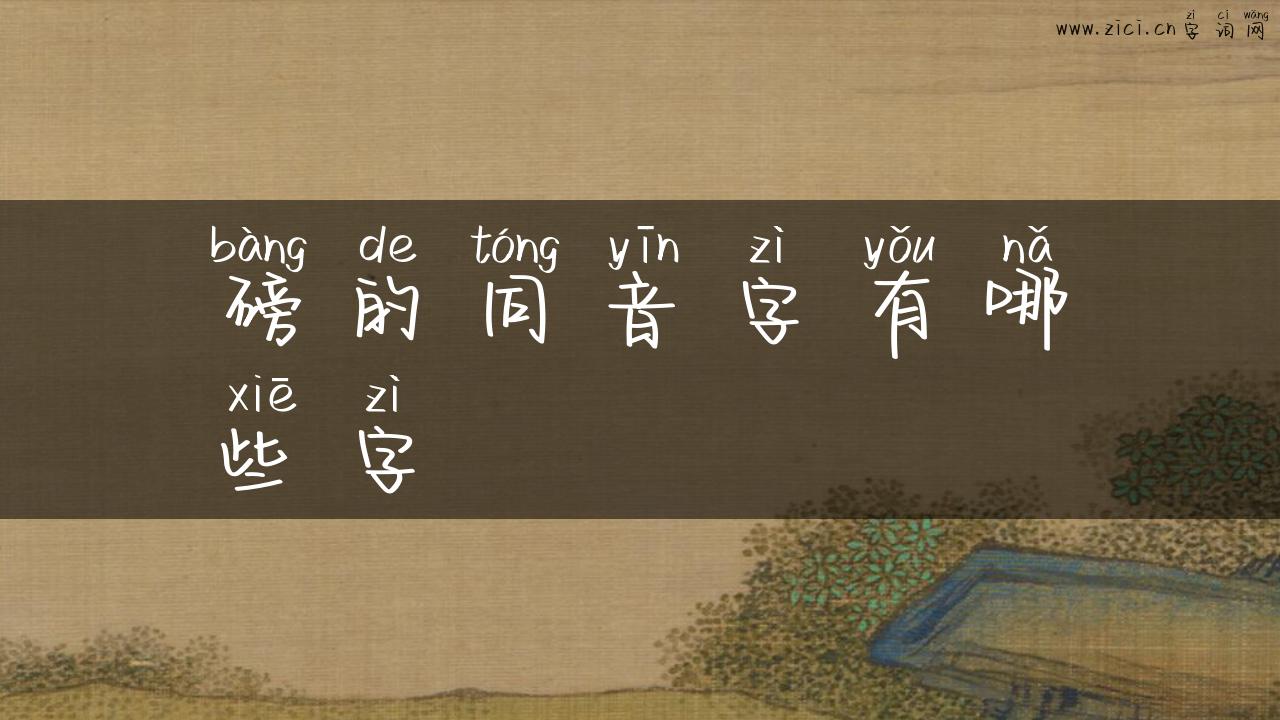 zì cí wǎng
www.zici.cn 字词网
bàng de tóng yīn zì yǒu nǎ
磅的同音字有哪
xiē zì
些字